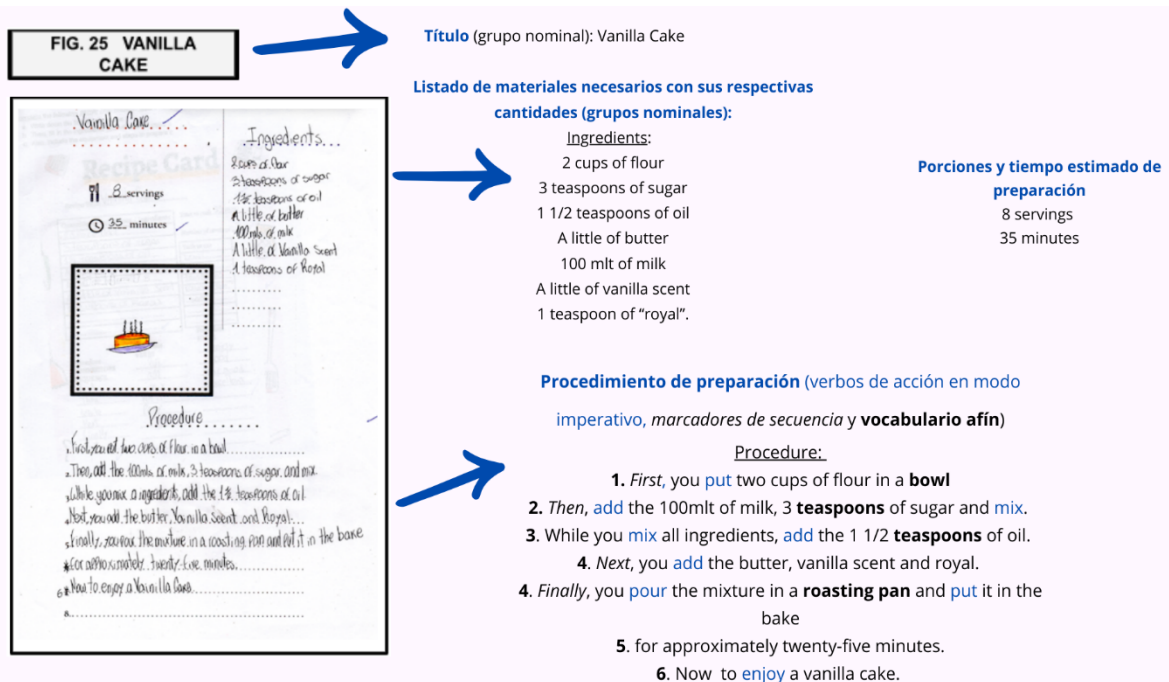 FIG. 25 VANILLA
CAKE
Título (grupo nominal): Vanilla Cake
Vainilla Cake
Recipe Card
8 servings
35 minutes
Ingredients
2 cups of flour
3 teaspoons of sugar
1 1/2 teaspoons of oil
A little of butter
100 mls of milk
A little of Vanilla Scent
1 teaspoons of Royal
Procedure
First, you put two cups of flour in a bowl
Then, add the 100mls of milk, 3 teaspoons of sugar and mix
While you mix a ingredients, add the 1 1/2 teaspoons of oil
Next, you add the butter, Vainilla Scent and Royal
Finally, you pour the mixture in a roasting pan and put it in the bake
for approximately twenty-five minutes.
6 Now to enjoy a Vainilla Cake
8.
Listado de materiales necesarios con sus respectivas
cantidades (grupos nominales):
Ingredients:
2 cups of flour
3 teaspoons of sugar
1 1/2 teaspoons of oil
A little of butter
100 mlt of milk
A little of vanilla scent
1 teaspoon of “royal”.
Porciones y tiempo estimado de
preparación
8 servings
35 minutes
Procedimiento de preparación (verbos de acción en modo
imperativo, marcadores de secuencia y vocabulario afín)
Procedure:
1. First, you put two cups of flour in a bowl
2. Then, add the 100mlt of milk, 3 teaspoons of sugar and mix.
3. While you mix all ingredients, add the 1 1/2 teaspoons of oil.
4. Next, you add the butter, vanilla scent and royal.
4. Finally, you pour the mixture in a roasting pan and put it in the
bake
5. for approximately twenty-five minutes.
6. Now to enjoy a vanilla cake.